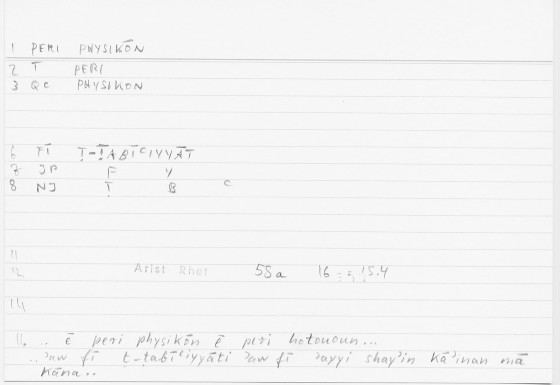 1 PERI PHYSIKŌN
2 T PERI
3 QC PHYSIKON
6 FĪ Ṭ-ṬABĪʿIYYĀT
7 JP F Y
8 NJ Ṭ B ʿ
11
12 Arist Rhet 55a 16 = 15.4
14
16. .. ē peri physikōn ē peri hotououn...
..ʾaw fī ṭ-ṭabīʿiyyāti ʾaw fī ʾayyi shayʾin kāʾinan mā
kāna..